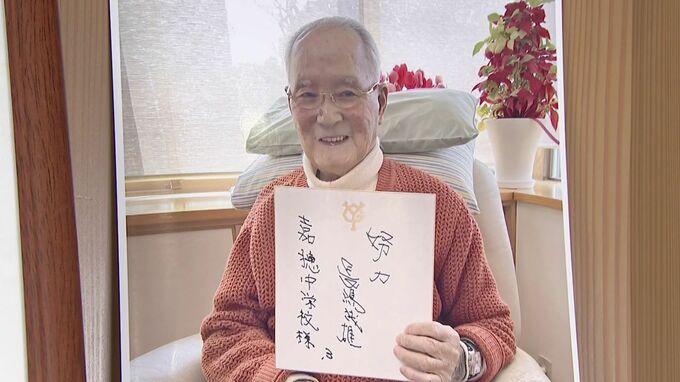 努力
長嶋茂雄
3
嘉穂中学校様